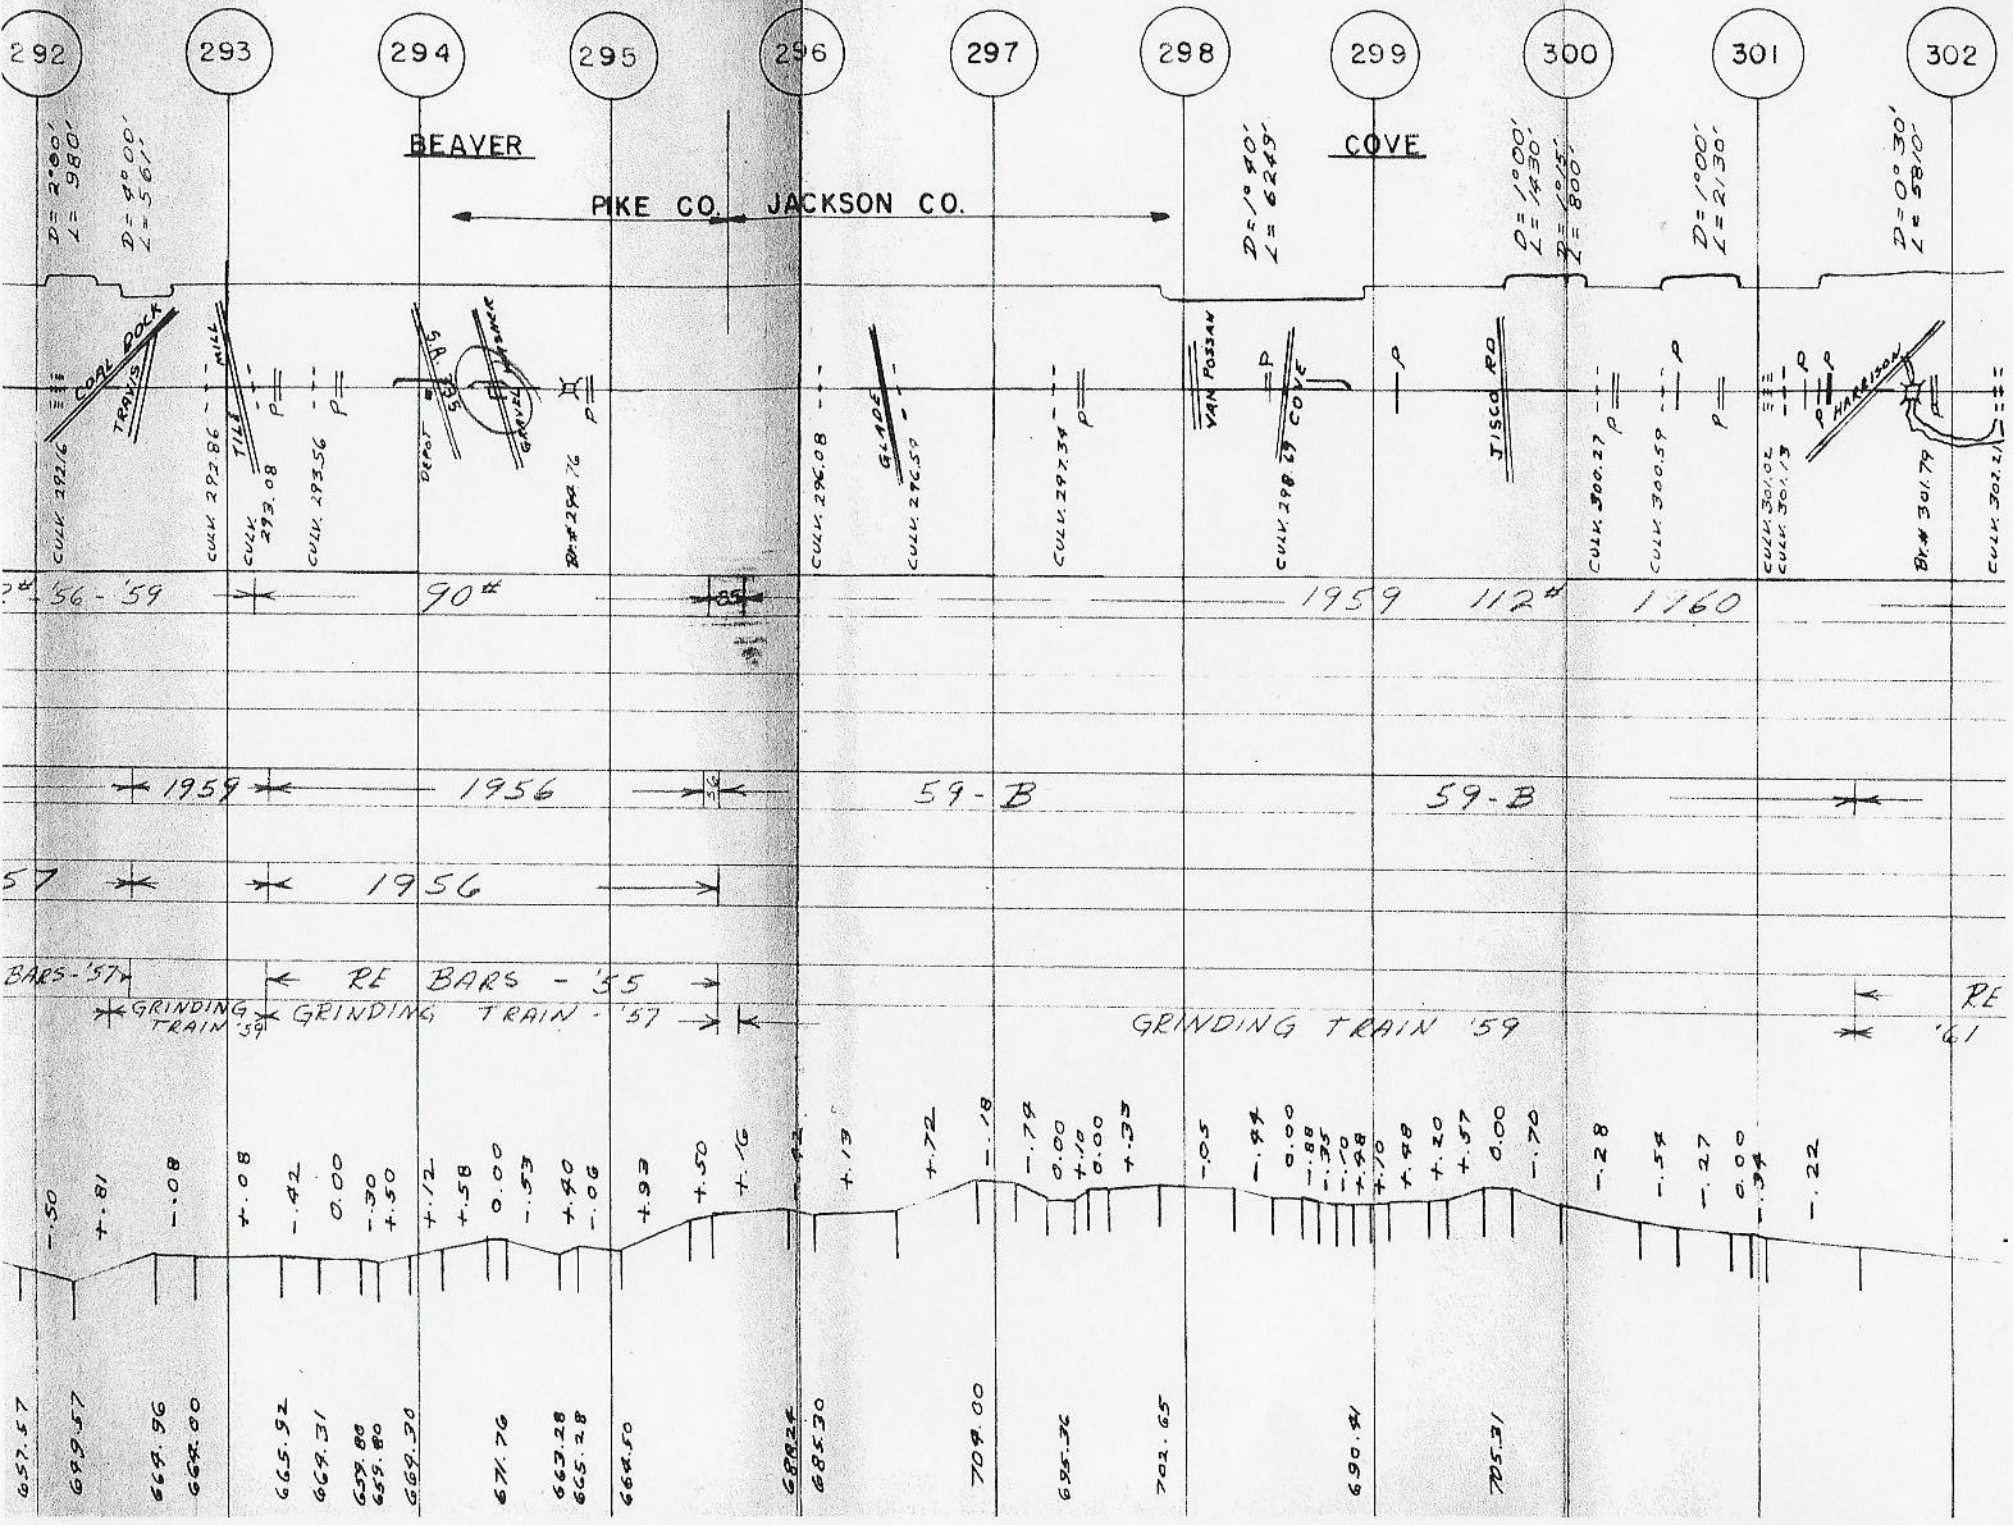 292 293 294 295 296 297 298 299 300 301 302
BEAVER
COVE
PIKE CO. JACKSON CO.
D=2°00'
L= 980'
D=4°00'
L=561'
D=1°40'
L=6249'
D=1°00'
L=1430'
D=1°15'
L=800'
D=1°00'
L=2130'
D=0°30'
L=5810'
COAL DOCK
TRAVIS
MILL
TILE
P
P
S.A.
DEPOT
WASHER
GRAVEL
P
GLADE
P
VAN POSSAN
P
COVE
P
JISCO RD
P
P
P
P
P
P
HARRISON
P
CULV. 292.16
CULV. 292.86
CULV. 293.08
CULV. 293.56
Br.# 294.76
CULV. 296.08
CULV. 296.59
CULV. 297.34
CULV. 298.69
CULV. 300.27
CULV. 300.59
CULV. 301.02
CULV. 301.13
Br.# 301.79
CULV. 302.21
2# '56 - '59 90# 85 1959 112# 1960
1959 1956 56 59-B 59-B
57 1956
BARS-'57 RE BARS - '55 RE
GRINDING TRAIN '59 GRINDING TRAIN - '57 GRINDING TRAIN '59 '61
-.50 +.81 -.08 +.08 -.42 0.00 -.30 +.50 +.12 +.58 0.00 -.53 +.40 -.06 +.93 +.50 +.16 -.42 +.13 +.72 -.18 -.74 0.00 +.10 0.00 +.33 -.05 -.44 0.00 -.88 -.35 -.10 +.48 +.10 +.48 +.20 +.57 0.00 -.70 -.28 -.54 -.27 0.00 -.34 -.22
657.57 649.57 664.96 664.00 665.92 664.31 659.80 659.80 664.30 671.76 663.28 665.28 664.50 685.30 709.00 695.36 702.65 690.41 705.31